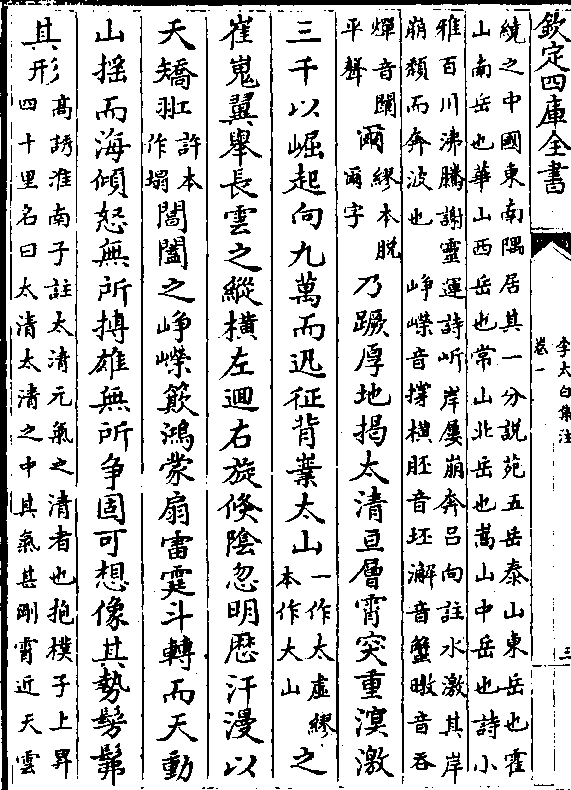 欽定四庫全書
李太白集注
卷一
三
繞之中國東南隅居其一分說苑五岳泰山東岳也霍
山南岳也華山西岳也常山北岳也嵩山中岳也詩小
雅百川沸騰謝靈運詩圻岸屢崩奔呂向註水激其岸
崩頽而奔波也 峥嶸音撑橫胚音坯澥音蟹暾音吞
燀音闡
平聲
爾
繆本脫
爾字
乃蹶厚地揭太清亘層霄突重溟激
三千以崛起向九萬而迅征背嶪太山
一作太虛繆
本作大山
之
崔嵬翼舉長雲之縱橫左迴右旋倏陰忽明歴汗漫以
夭矯羾
許本
作塌
閶闔之峥嶸簸鴻蒙扇雷霆斗轉而天動
山揺而海傾怒無所搏雄無所争固可想像其勢髣髴
其形
髙誘淮南子註太清元氣之清者也抱樸子上昇
四十里名曰太清太清之中其氣甚剛霄近天雲